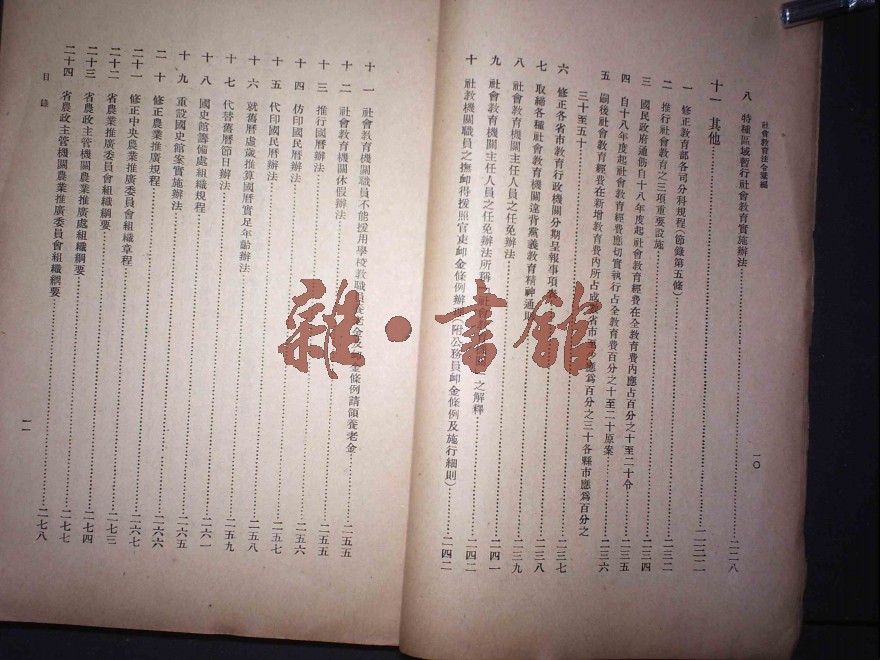 社會教育法令彙編
一〇
八 特種區域暫行社會教育實施辦法…………二二八
十一 其他…………二三二
一 修正教育部各司分科規程(節錄第五條)…………二三二
二 推行社會教育之三項重要設施…………二三四
三 國民政府通飭自十八年度起社會教育經費在全教育費內應占百分之十至二十令…………二三五
四 自十八年度起社會教育經費應切實執行占全教育費百分之十至二十原案…………二三六
五 嗣後社會教育經費在新增教育費內所占成 省市 應爲百分之三十各縣市應爲百分之
三十至五十…………
六 修正各省市教育行政機關分期呈報事項 …………二三七
七 取締各種社會教育機關違背黨義教育精神通則…………二三八
八 社會教育機關主任人員之任免辦法…………二三九
九 社會教育機關主任人員之任免辦法所稱 社會 之解釋…………二四一
十 社教機關職員之撫卹得援照官吏卹金條例辦理(附公務員卹金條例及施行細則)…………二四二
十一 社會教育機關職員不能援用學校教職員養老金及卹金條例請領養老金…………二五五
十二 社會教育機關休假辦法…………二五五
十三 推行國曆辦法…………二五五
十四 仿印國民曆辦法…………二五六
十五 代印國民曆辦法…………二五七
十六 就舊曆虛歲推算國曆實足年齡辦法…………二五八
十七 代替舊曆節日辦法…………二五九
十八 國史館籌備處組織規程…………二六一
十九 重設國史館案實施辦法…………二六五
二十 修正農業推廣規程…………二六六
二十一 修正中央農業推廣委員會組織章程…………二六七
二十二 省農業推廣委員會組織綱要…………二七三
二十三 省農政主管機關農業推廣處組織綱要…………二七四
二十四 省農政主管機關農業推廣委員會組織綱要…………二七七
…………二七八
目錄
一一
雜·書館